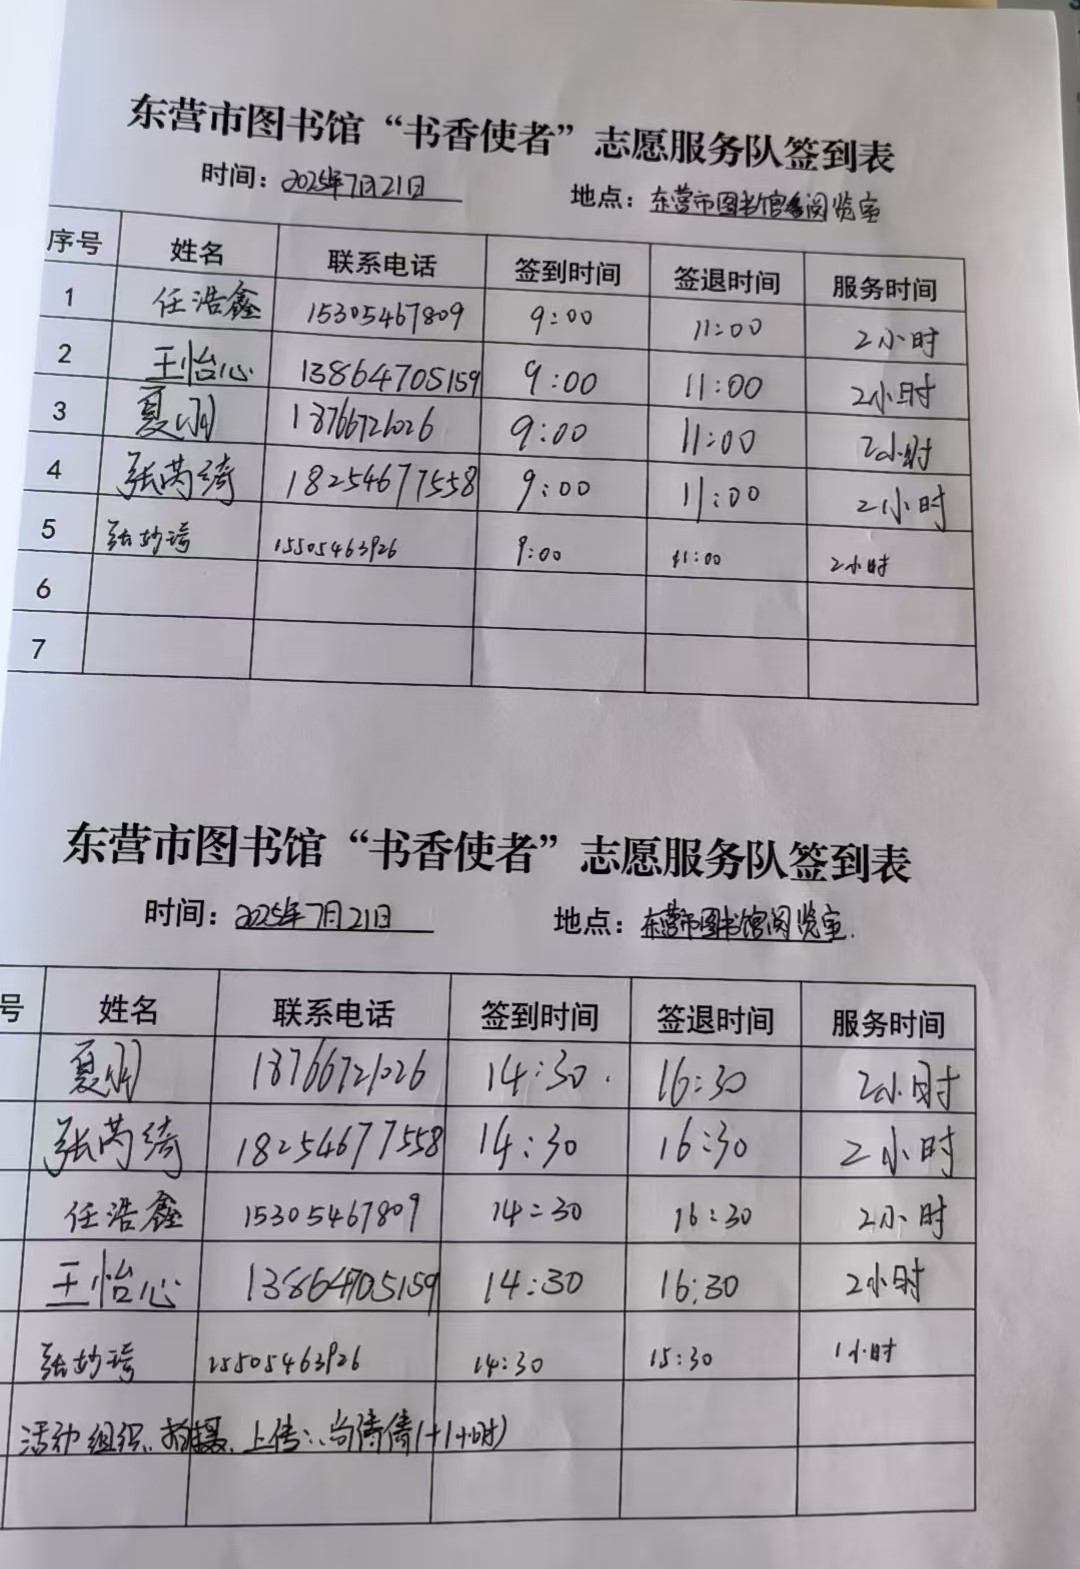 东营市图书馆“书香使者”志愿服务队签到表
时间：2025年7月21日 地点：东营市图书馆阅览室
序号 姓名 联系电话 签到时间 签退时间 服务时间
1 任浩鑫 15305467809 9:00 11:00 2小时
2 王怡心 13864705159 9:00 11:00 2小时
3 夏 13766721026 9:00 11:00 2小时
4 张芮绮 18254677558 9:00 11:00 2小时
5 张妙 15505463926 9:00 11:00 2小时
6
7
东营市图书馆“书香使者”志愿服务队签到表
时间：2025年7月21日 地点：东营市图书馆阅览室.
号 姓名 联系电话 签到时间 签退时间 服务时间
夏 13766721026 14:30. 16:30 2小时
张芮绮 18254677558 14:30 16:30 2小时
任浩鑫 15305467809 14:30 16:30 2小时
王怡心 13864705159 14:30 16:30 2小时
张妙 15505463926 14:30 15:30 1小时
活动组织、拍摄、上传：尚倩倩(+1小时)